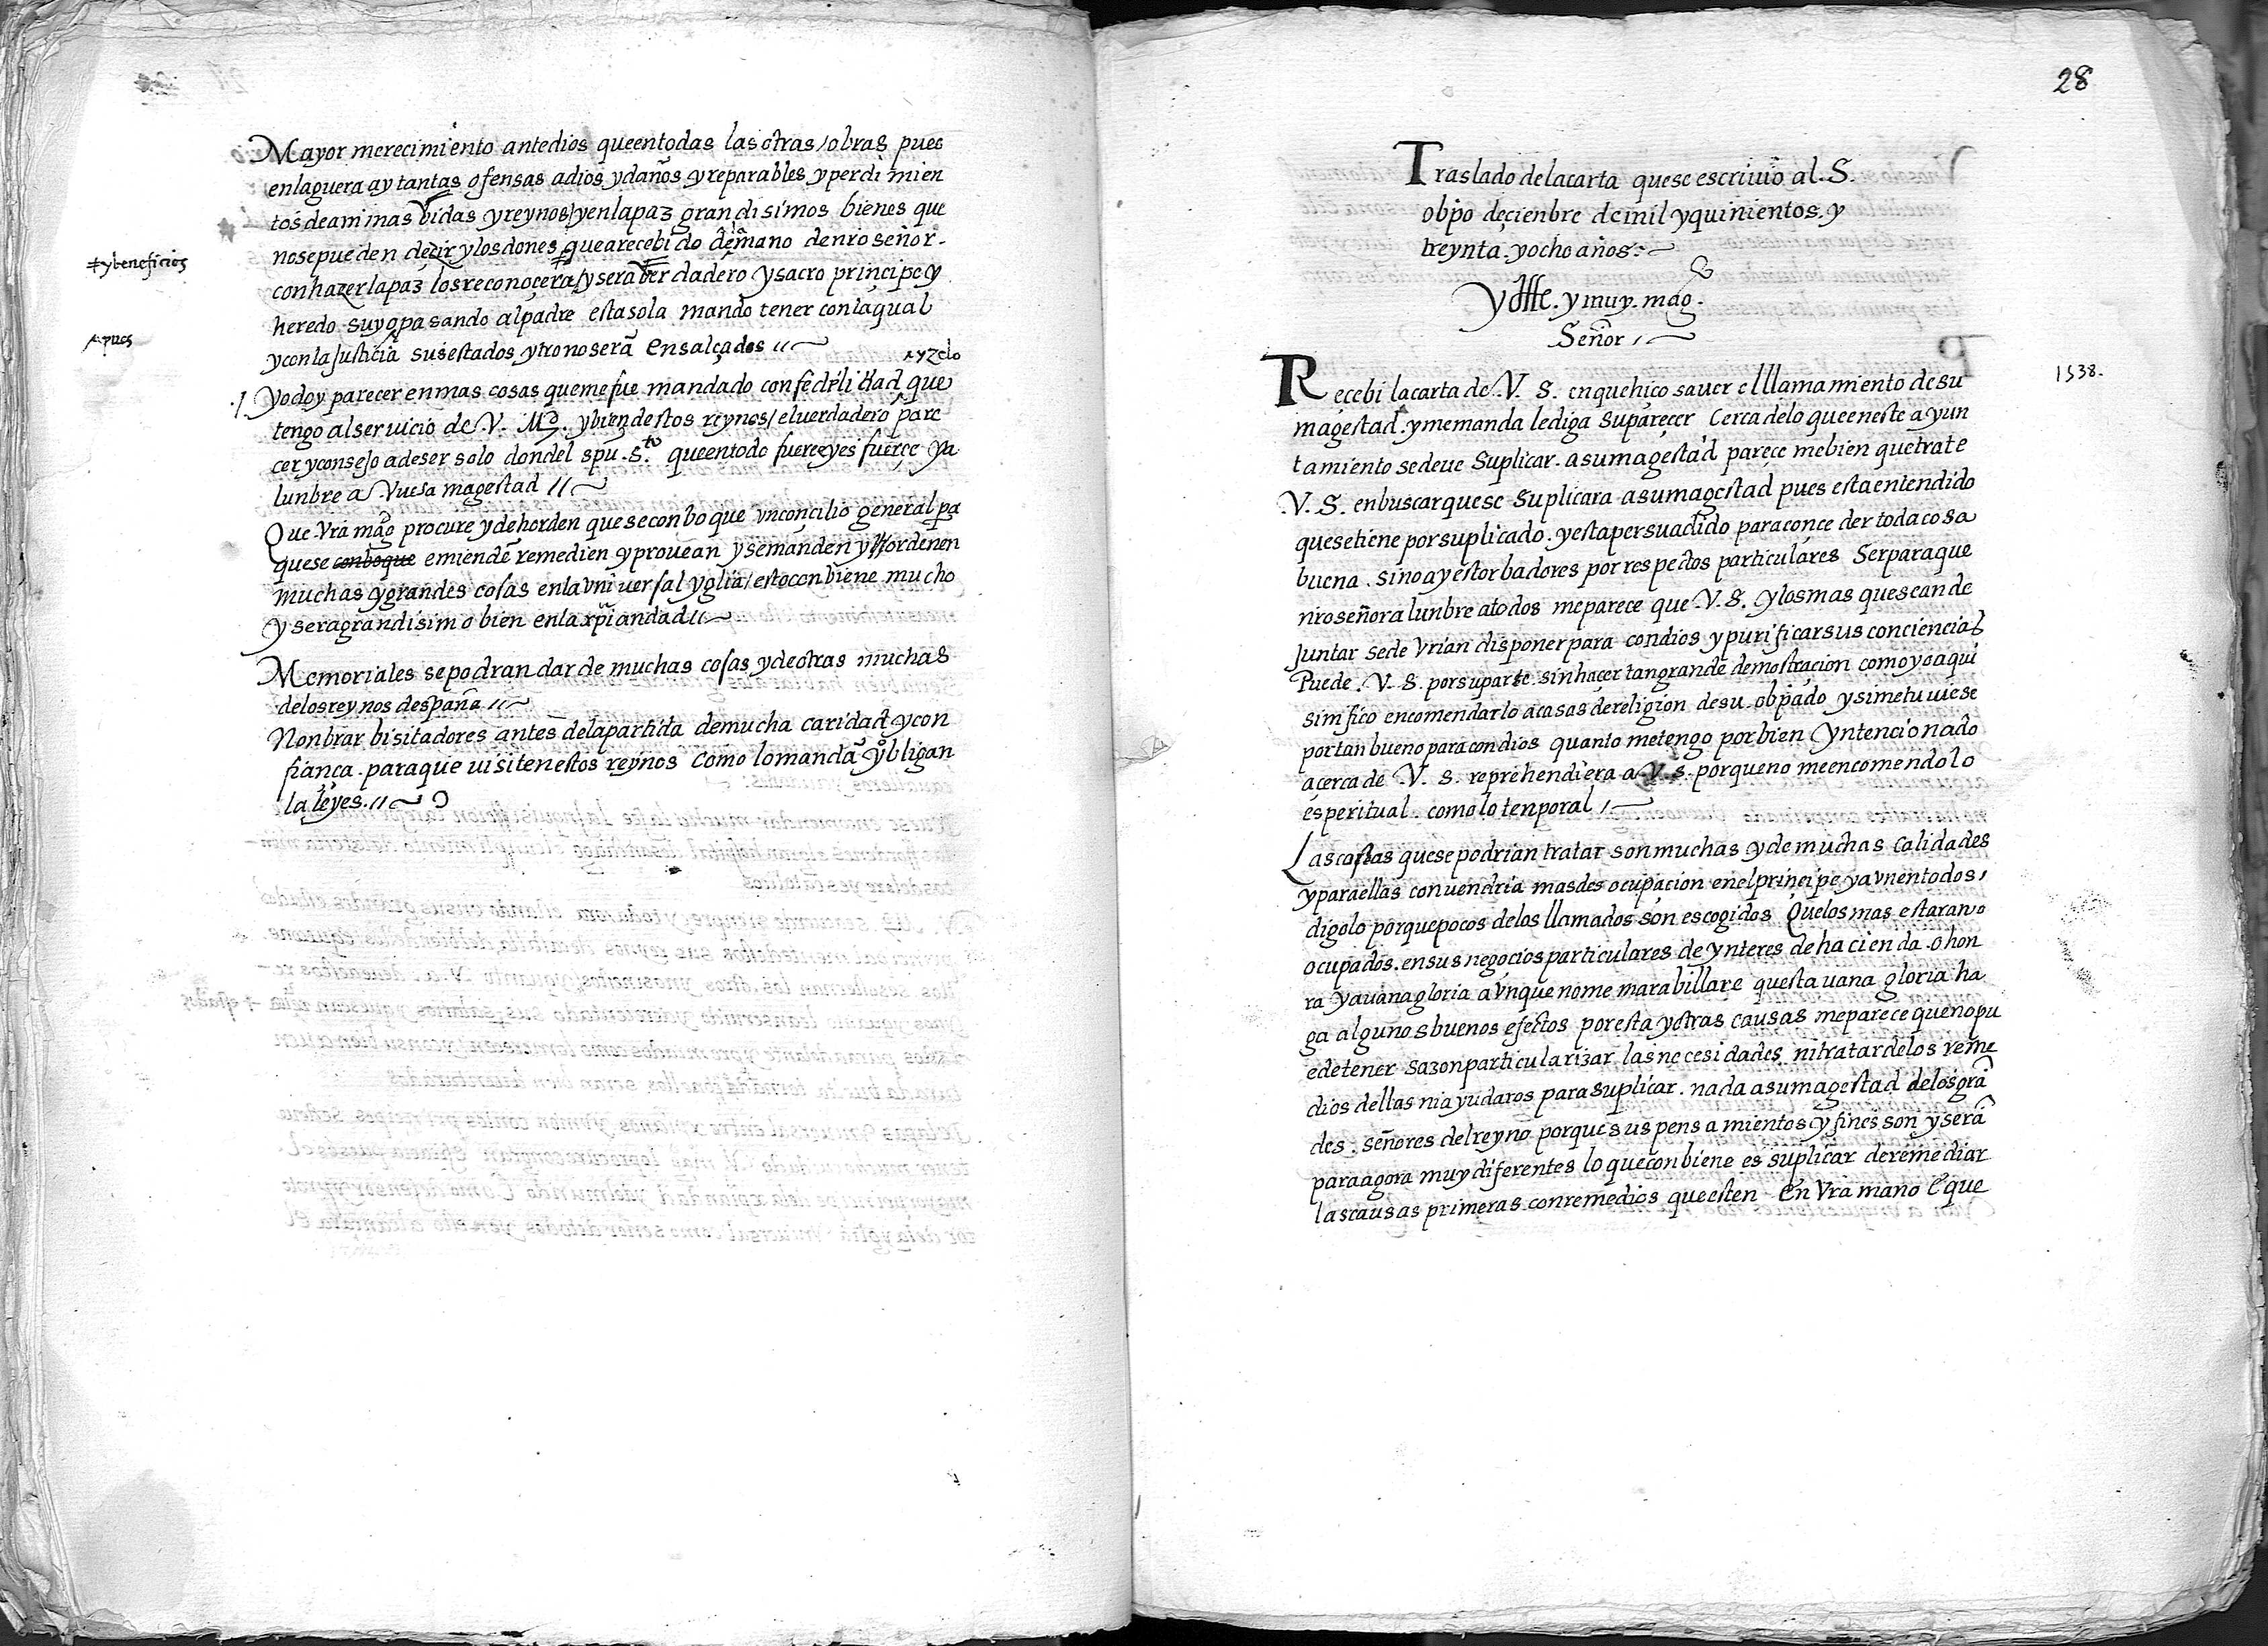 Mayor merecimiento antedios queentodas las otras / obras pues
enlaguera ay tantas ofensas adios ydaños yreparables yperdimien
tos deaminas vidas yreynos / yenlapaz grandisimos bienes que
nosepueden dezir ylosdones quearecebido demano denro señor.
+ ybeneficios
conhazerlapaz losreconoçera / ysera verdadero ysacro principe y
heredo suyo pasando alpadre estasola mando tener conlaqual
pues
yconlaJusticia susestados ytronoserā ensalçados //~
yzelo
.1. yodoy parecer enmas cosas quemefue mandado confedilidad que
tengo alseruicio de .V. M.d ybiendestos reynos / elverdadero pare
cer yconsejo adeser solo dondel spu. S.to queentodo fuerçe ya
lunbre a Vuesa magestad //~
Que Vrā mag.d procure ydehorden queseconboque vnconcilio general pa
quese conboque emiendē remedien yprouean ysemanden yhordenen
muchas ygrandes cosas enlavniuersal yglia / estoconbiene mucho
yseragrandisimo bien enlaxp̄iandad //~
Memoriales sepodran dar de muchas cosas ydeotras muchas
delosreynos despaña //~
Nonbrar bisitadores antes delapartida demucha caridad ycon
fiança. paraque uisitenestos reynos como lomandā yobligan
la leyes. //~
28
Traslado delacarta quese escriuio al. S.
obp̄o deçienbre demil yquinientos. y
treynta. yocho años:~
Ylle. y muy. mag.o
Señor /~
1538.
Recebi lacarta de .V. S. enquehiço sauer elllamamiento desu
magestad. ymemanda lediga suparecer cerca delo queeneste ayun
tamiento sedeue suplicar. asumagestad pareçe mebien quetrate
.V. S. enbuscarquese suplicara asumagestad pues estaentendido
quesetiene porsuplicado. yestapersuadido paraconçeder todacosa
buena. sino ayestorbadores porrespectos particulares Serparaque
nroseñor alunbre atodos meparece que .V. S. ylosmas quesean de
Juntar sedeVrian disponerpara condios ypurificarsus conciencias
Puede. V. S. porsuparte. sinhaçer tangrande demostraçion comoyoaqui
sinifico encomendarlo acasas dereligion desu. obpado ysimetuuiese
portanbueno paracondios quanto metengo porbien yntencionado
açerca de .V. s. reprehendiera a .V. s. porqueno meencomendolo
esperitual. como lo tenporal /~
Las cosas quese podrian tratar sonmuchas yde muchas calidades
yparaellas conuendria masdesocupacion enelprinçipe yavnentodos /
digolo porquepocos delos llamados son escogidos Quelosmas estaran
ocupados. ensusnegocios particulares de ynteres dehacienda. ohon
ra yauanagloria avnque nome marabillare questa uana gloria ha
ga algunosbuenos efectos poresta yotras causas meparece quenopu
edetener sazonparticularizar lasnecesidades nitratardelos reme
dios dellas niayudaros parasuplicar. nada asumagestad delosgrā
des. señores delreyno porquesuspensamientos yfines son yserā
paraagora muydiferentes lo queconbiene es suplicar deremediar
lascausas primeras conremedios queesten En Vra mano Eque